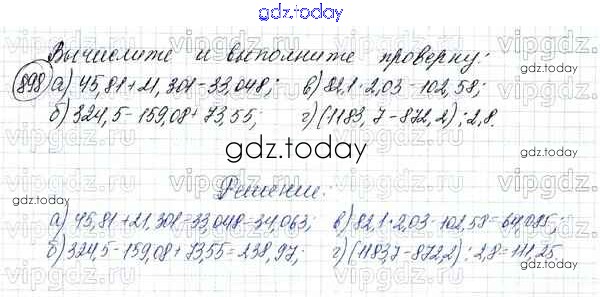 gdz.today
Вычислите и выполните проверку:
898 а) 45,81+21,301-33,048; в) 82,1·2,03-102,58;
б) 324,5-159,08+73,55; г) (1183,7-872,2):2,8.
gdz.today
Решение:
а) 45,81+21,301-33,048=34,063; в) 82,1·2,03-102,58=64,085;
б) 324,5-159,08+73,55=238,97; г) (1183,7-872,2):2,8=111,25
gdz.today